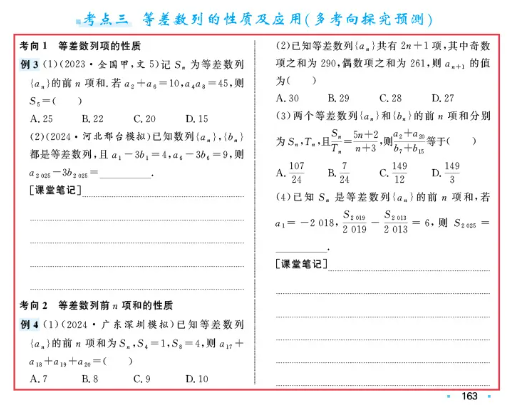 考点三 等差数列的性质及应用(多考向探究预测)
考向1 等差数列项的性质
例3 (1)(2023·全国甲,文5)记Sₙ为等差数列
{aₙ}的前n项和.若a₂+a₆=10,a₄a₈=45,则
S₅=( )
A.25 B.22 C.20 D.15
(2)(2024·河北邢台模拟)已知数列{aₙ},{bₙ}
都是等差数列,且a₁-3b₁=4,a₆-3b₆=9,则
a₂₀₂₅-3b₂₀₂₅=________.
[课堂笔记]
考向2 等差数列前n项和的性质
例4 (1)(2024·广东深圳模拟)已知等差数列
{aₙ}的前n项和为Sₙ,S₄=1,S₈=4,则a₁₇+
a₁₈+a₁₉+a₂₀=( )
A.7 B.8 C.9 D.10
(2)已知等差数列{aₙ}共有2n+1项,其中奇数
项之和为290,偶数项之和为261,则aₙ₊₁的值
为( )
A.30 B.29 C.28 D.27
(3)两个等差数列{aₙ}和{bₙ}的前n项和分别
为Sₙ,Tₙ,且Sₙ/Tₙ=(5n+2)/(n+3),则(a₂+a₂₀)/(b₇+b₁₅)等于( )
A.107/24 B.7/24 C.149/12 D.149/3
(4)已知Sₙ是等差数列{aₙ}的前n项和,若
a₁=-2 018,S₂₀₁₉/2 019-S₂₀₁₃/2 013=6,则S₂₀₂₅=
________.
[课堂笔记]
163